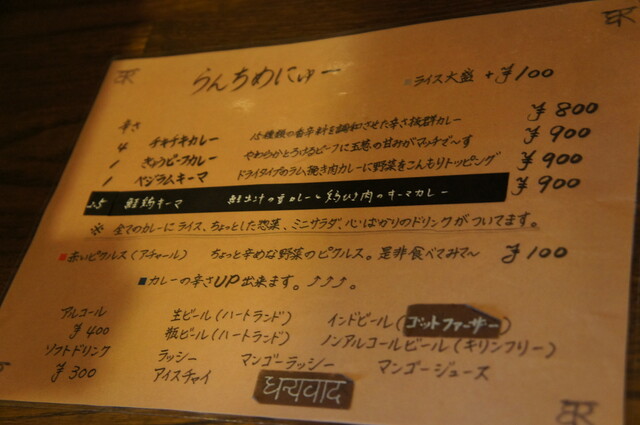 らんちめにゅー
■ライス大盛 +¥100
辛さ
4 チキチキカレー 15種類の香辛料を調和させた辛さ抜群カレー ¥800
1 ぎゅうビーフカレー やわらかとろけるビーフに玉葱の甘みがマッチで〜す ¥900
1 ベジラムキーマ ドライタイプのラム挽き肉カレーに野菜をこんもりトッピング ¥900
2.5 鮭鶏キーマ 鮭出汁の香カレーと鶏ひき肉のキーマカレー ¥900
※ 全てのカレーにライス、ちょっとした惣菜、ミニサラダ、心ばかりのドリンクがついてます。
■赤いピクルス(アチャール) ちょっと辛めな野菜のピクルス。是非食べてみて〜 ¥100
■カレーの辛さUP出来ます。⤴⤴⤴。
アルコール ¥400 生ビール(ハートランド) インドビール(ゴットファーザー)
瓶ビール(ハートランド) ノンアルコールビール(キリンフリー)
ソフトドリンク ¥300 ラッシー マンゴーラッシー マンゴージュース
アイスチャイ
धन्यवाद